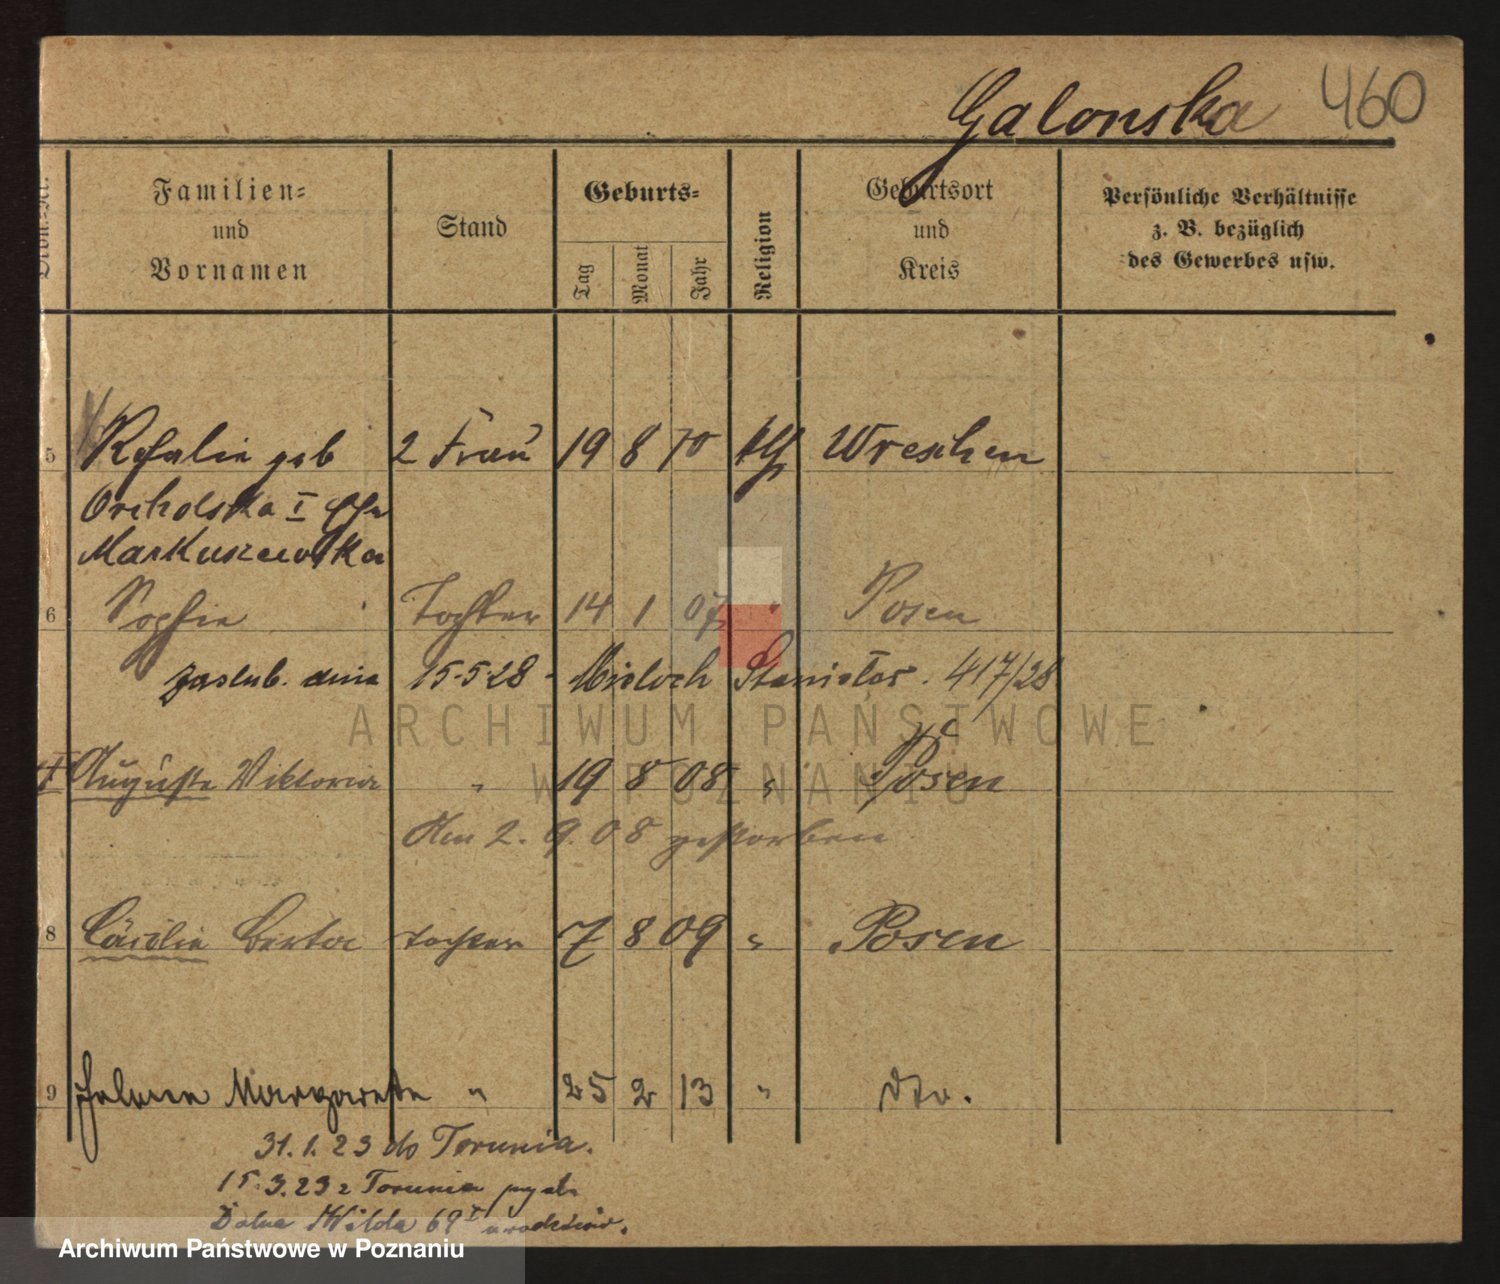 Galonska 460
Familien=
und
Vornamen
Stand
Geburts=
Tag
Monat
Jahr
Religion
Geburtsort
und
Kreis
Persönliche Verhältnisse
z. B. bezüglich
des Gewerbes usw.
5 Rosalie geb 2 Frau 19 8 70 Wreschen
Orcholska I Ehe
Markuszewska
6 Sophie Tochter 14 1 07 " Posen
zaslub. dnia 15-5-28 - Misloch Stanislas. 417/28
Auguste Viktoria " 19 8 08 " Posen
Am 2. 9. 08 gestorben
8 Cäcilie Berta Tochter 7 8 09 " Posen
9 Helene Margarethe " 25 2 13 " dto.
31. 1. 23 do Torunia.
15.3.23 z Torunia
Dolna Wilda 69 I
ARCHIWUM PAŃSTWOWE
W POZNANIU
Archiwum Państwowe w Poznaniu